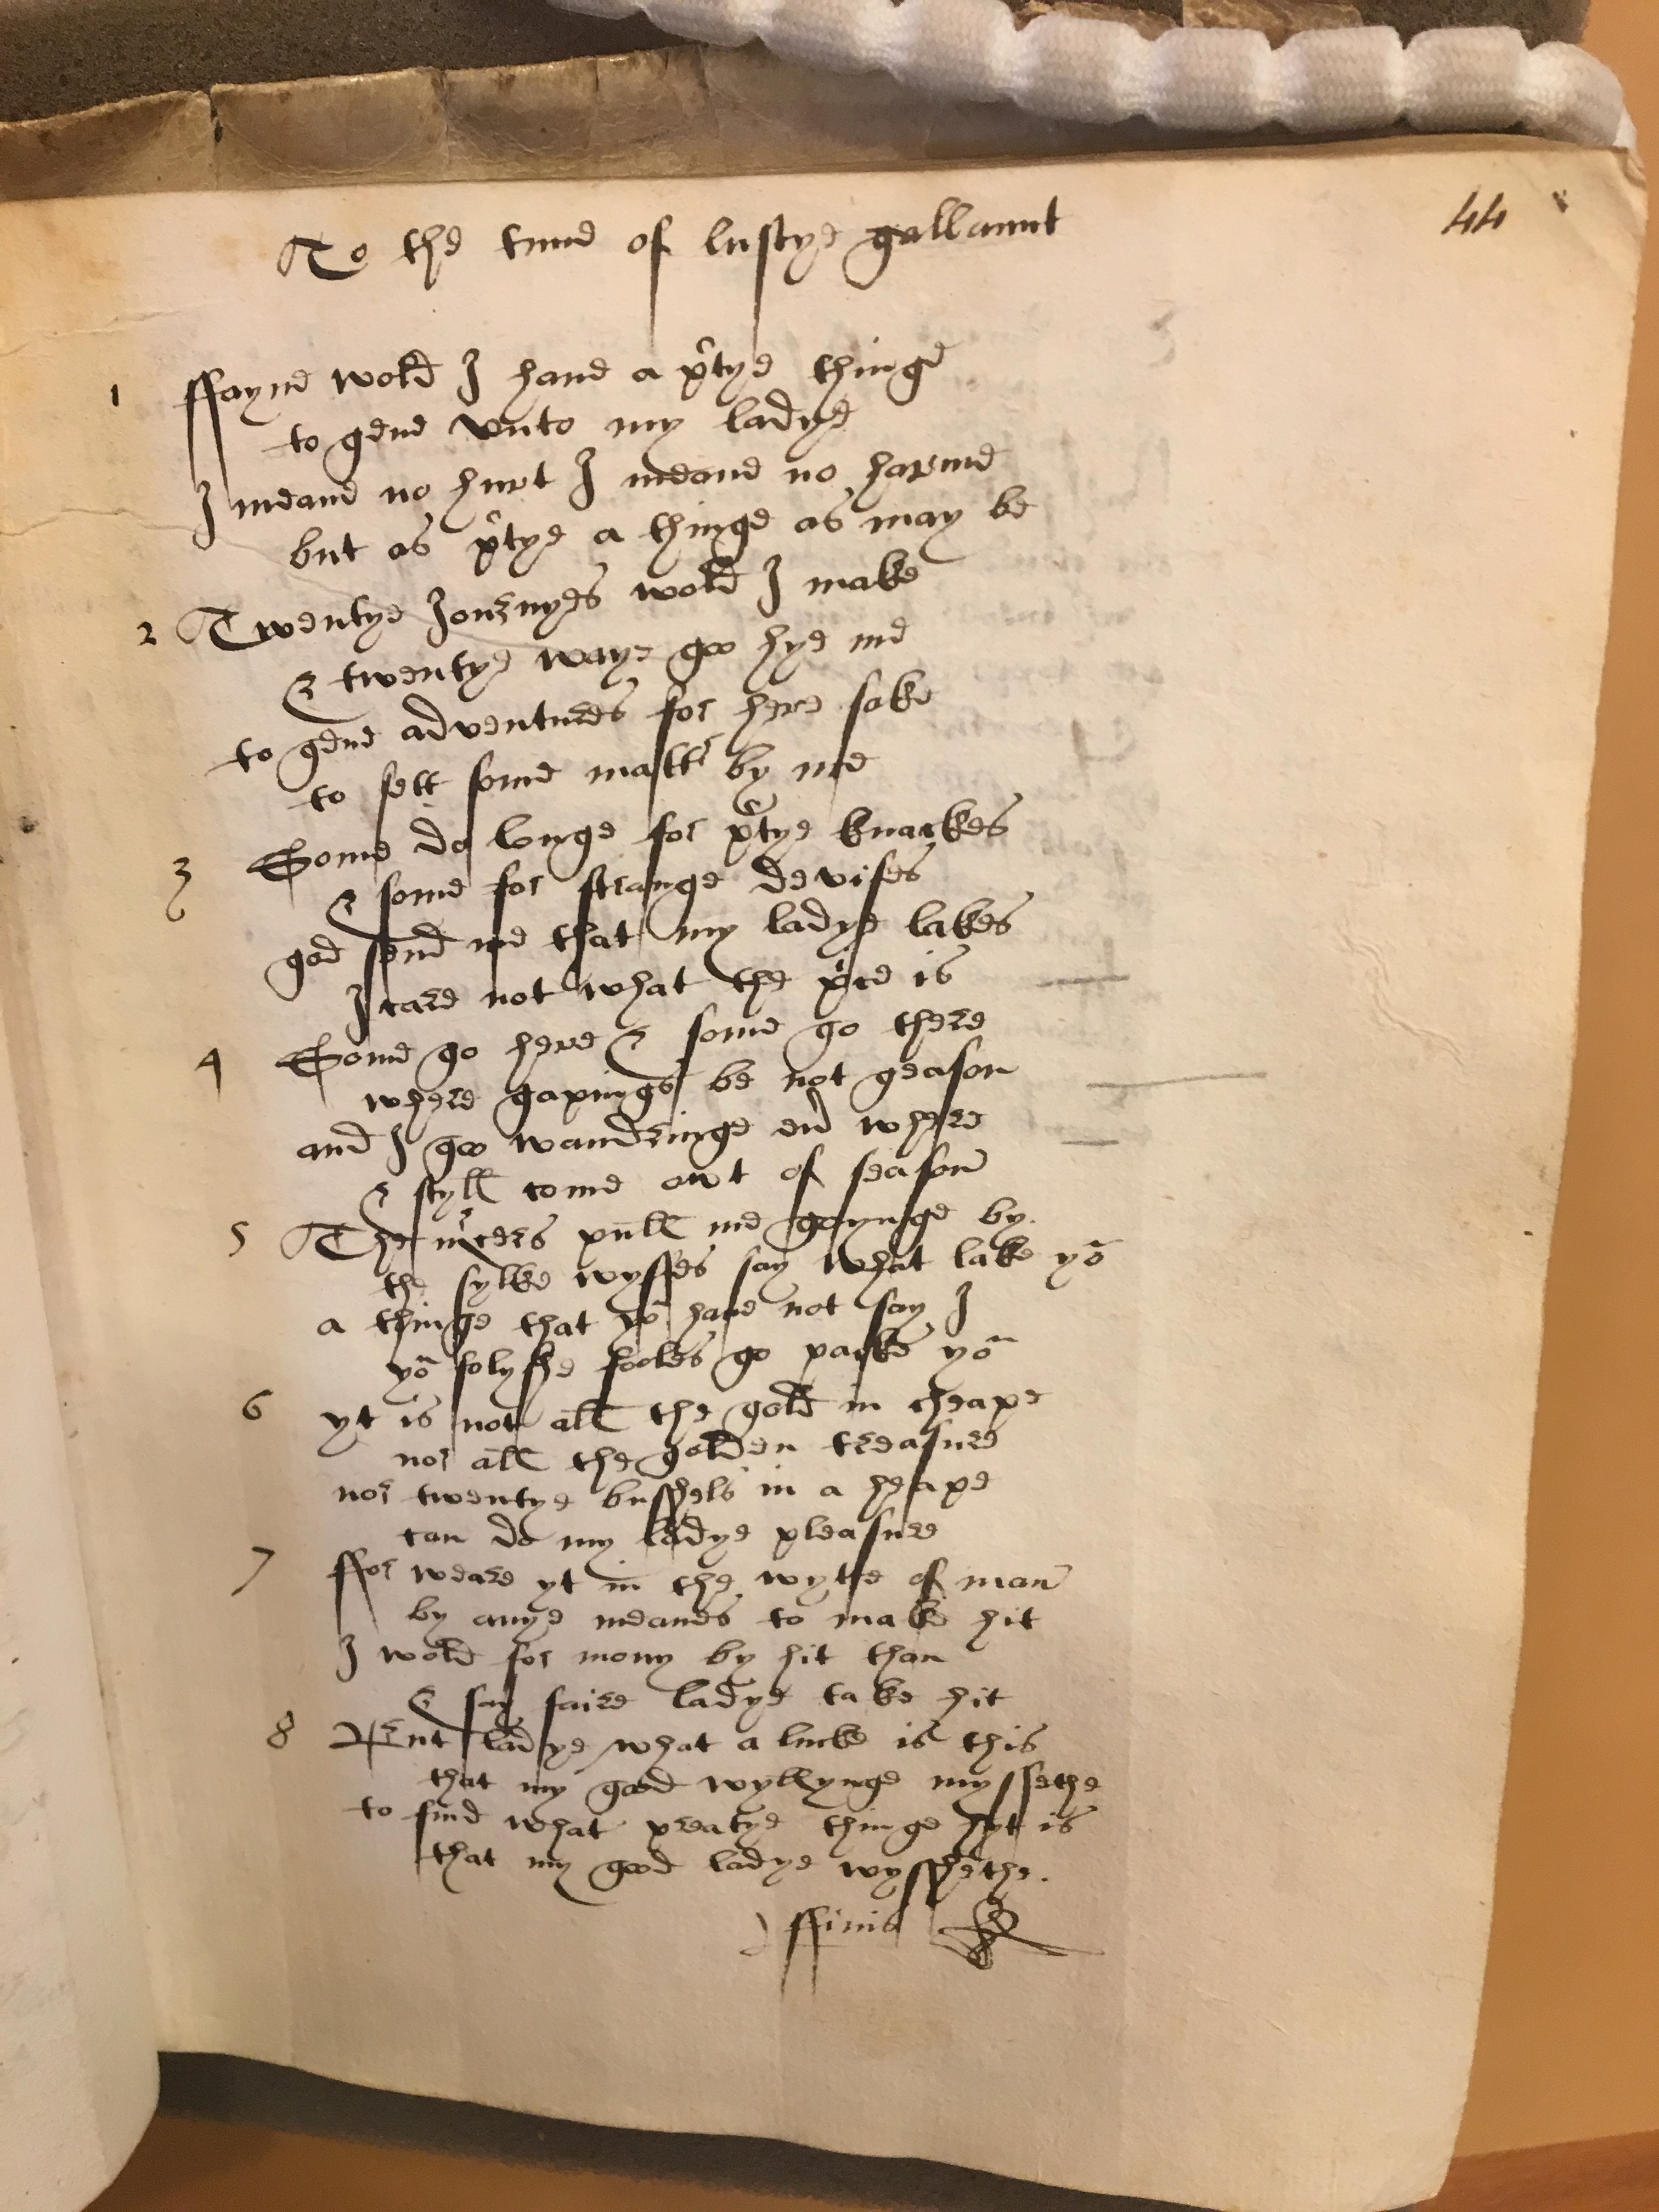 44
To the tune of lustye gallaunt
1 ffayne wold I haue a prtye thinge
to geue vnto my ladye
I meane no hurt I meane no harme
but as prtye a thinge as may be
2 Twentye Iournyes wold I make
& twentye waye goo hye me
to geue adventures for here sake
to sett some mattr by me
3 Some do longe for prtye knackes
& some for strange devises
god send me that my ladye lakes
I care not what the price is
4 Some go here & some go there
where gapings be not geason
and I goo wandringe eu where
& styll come owt of season
5 The mrcers pull me goynge by
the sylke wyffes say what lake yo
a thinge that yo haue not say I
yo folyshe fooles go packe yo
6 yt is not all the gold in cheape
nor all the golden treasure
nor twentye busshels in a heape
can do my ladye pleasure
7 ffor weare yt in the wytte of man
by anye meanes to make hit
I wold for mony by hit than
& say faire ladye take hit
8 ladye what a lucke is this
that my good wyllynge myssethe
to find what preatye thinge hyt is
that my good ladye wysshethe.
ffinis